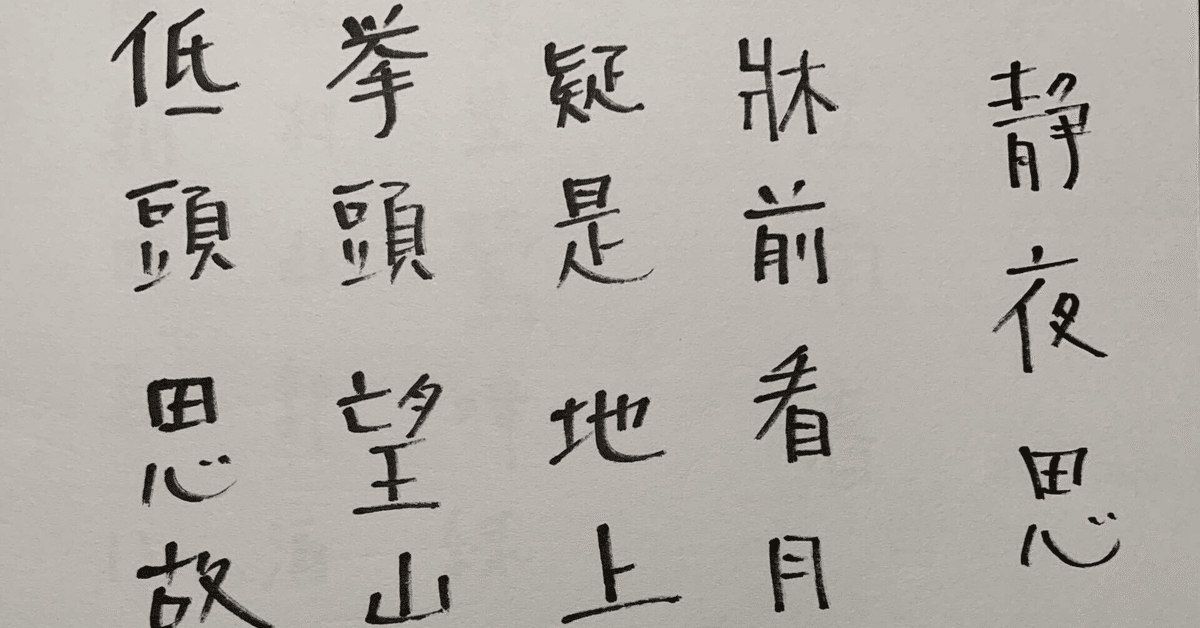 静夜思
牀前看月
疑是地上
挙頭望山
低頭思故